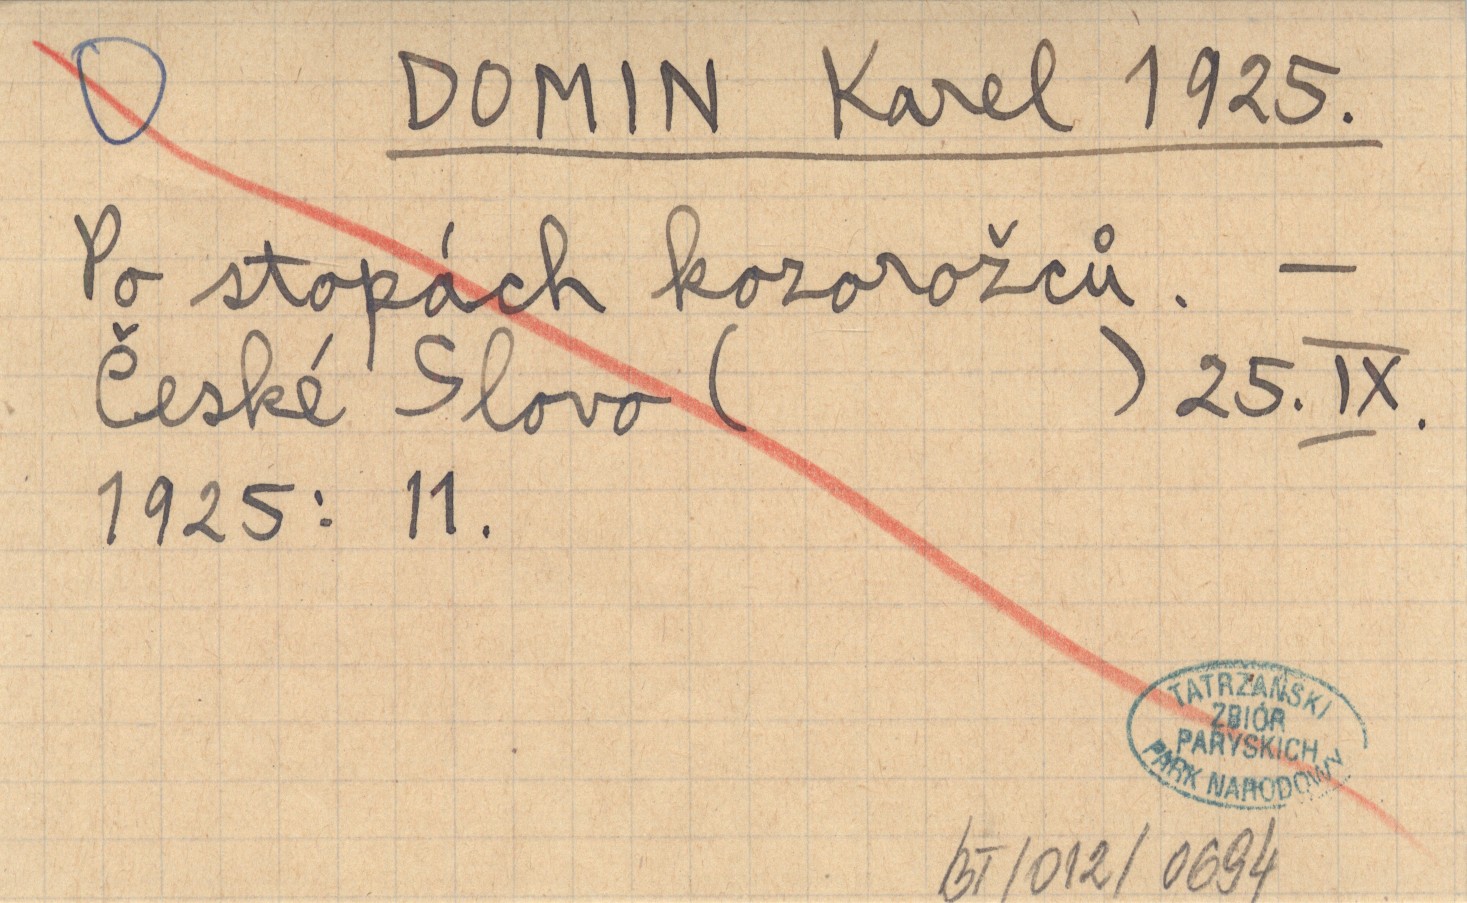 DOMIN Karel 1925.
Po stopách kozorožců. —
České Slovo ( ) 25. IX.
1925: 11.
TATRZAŃSKI
ZBIÓR
PARYSKICH
PARK NARODOWY
BT/012/0694